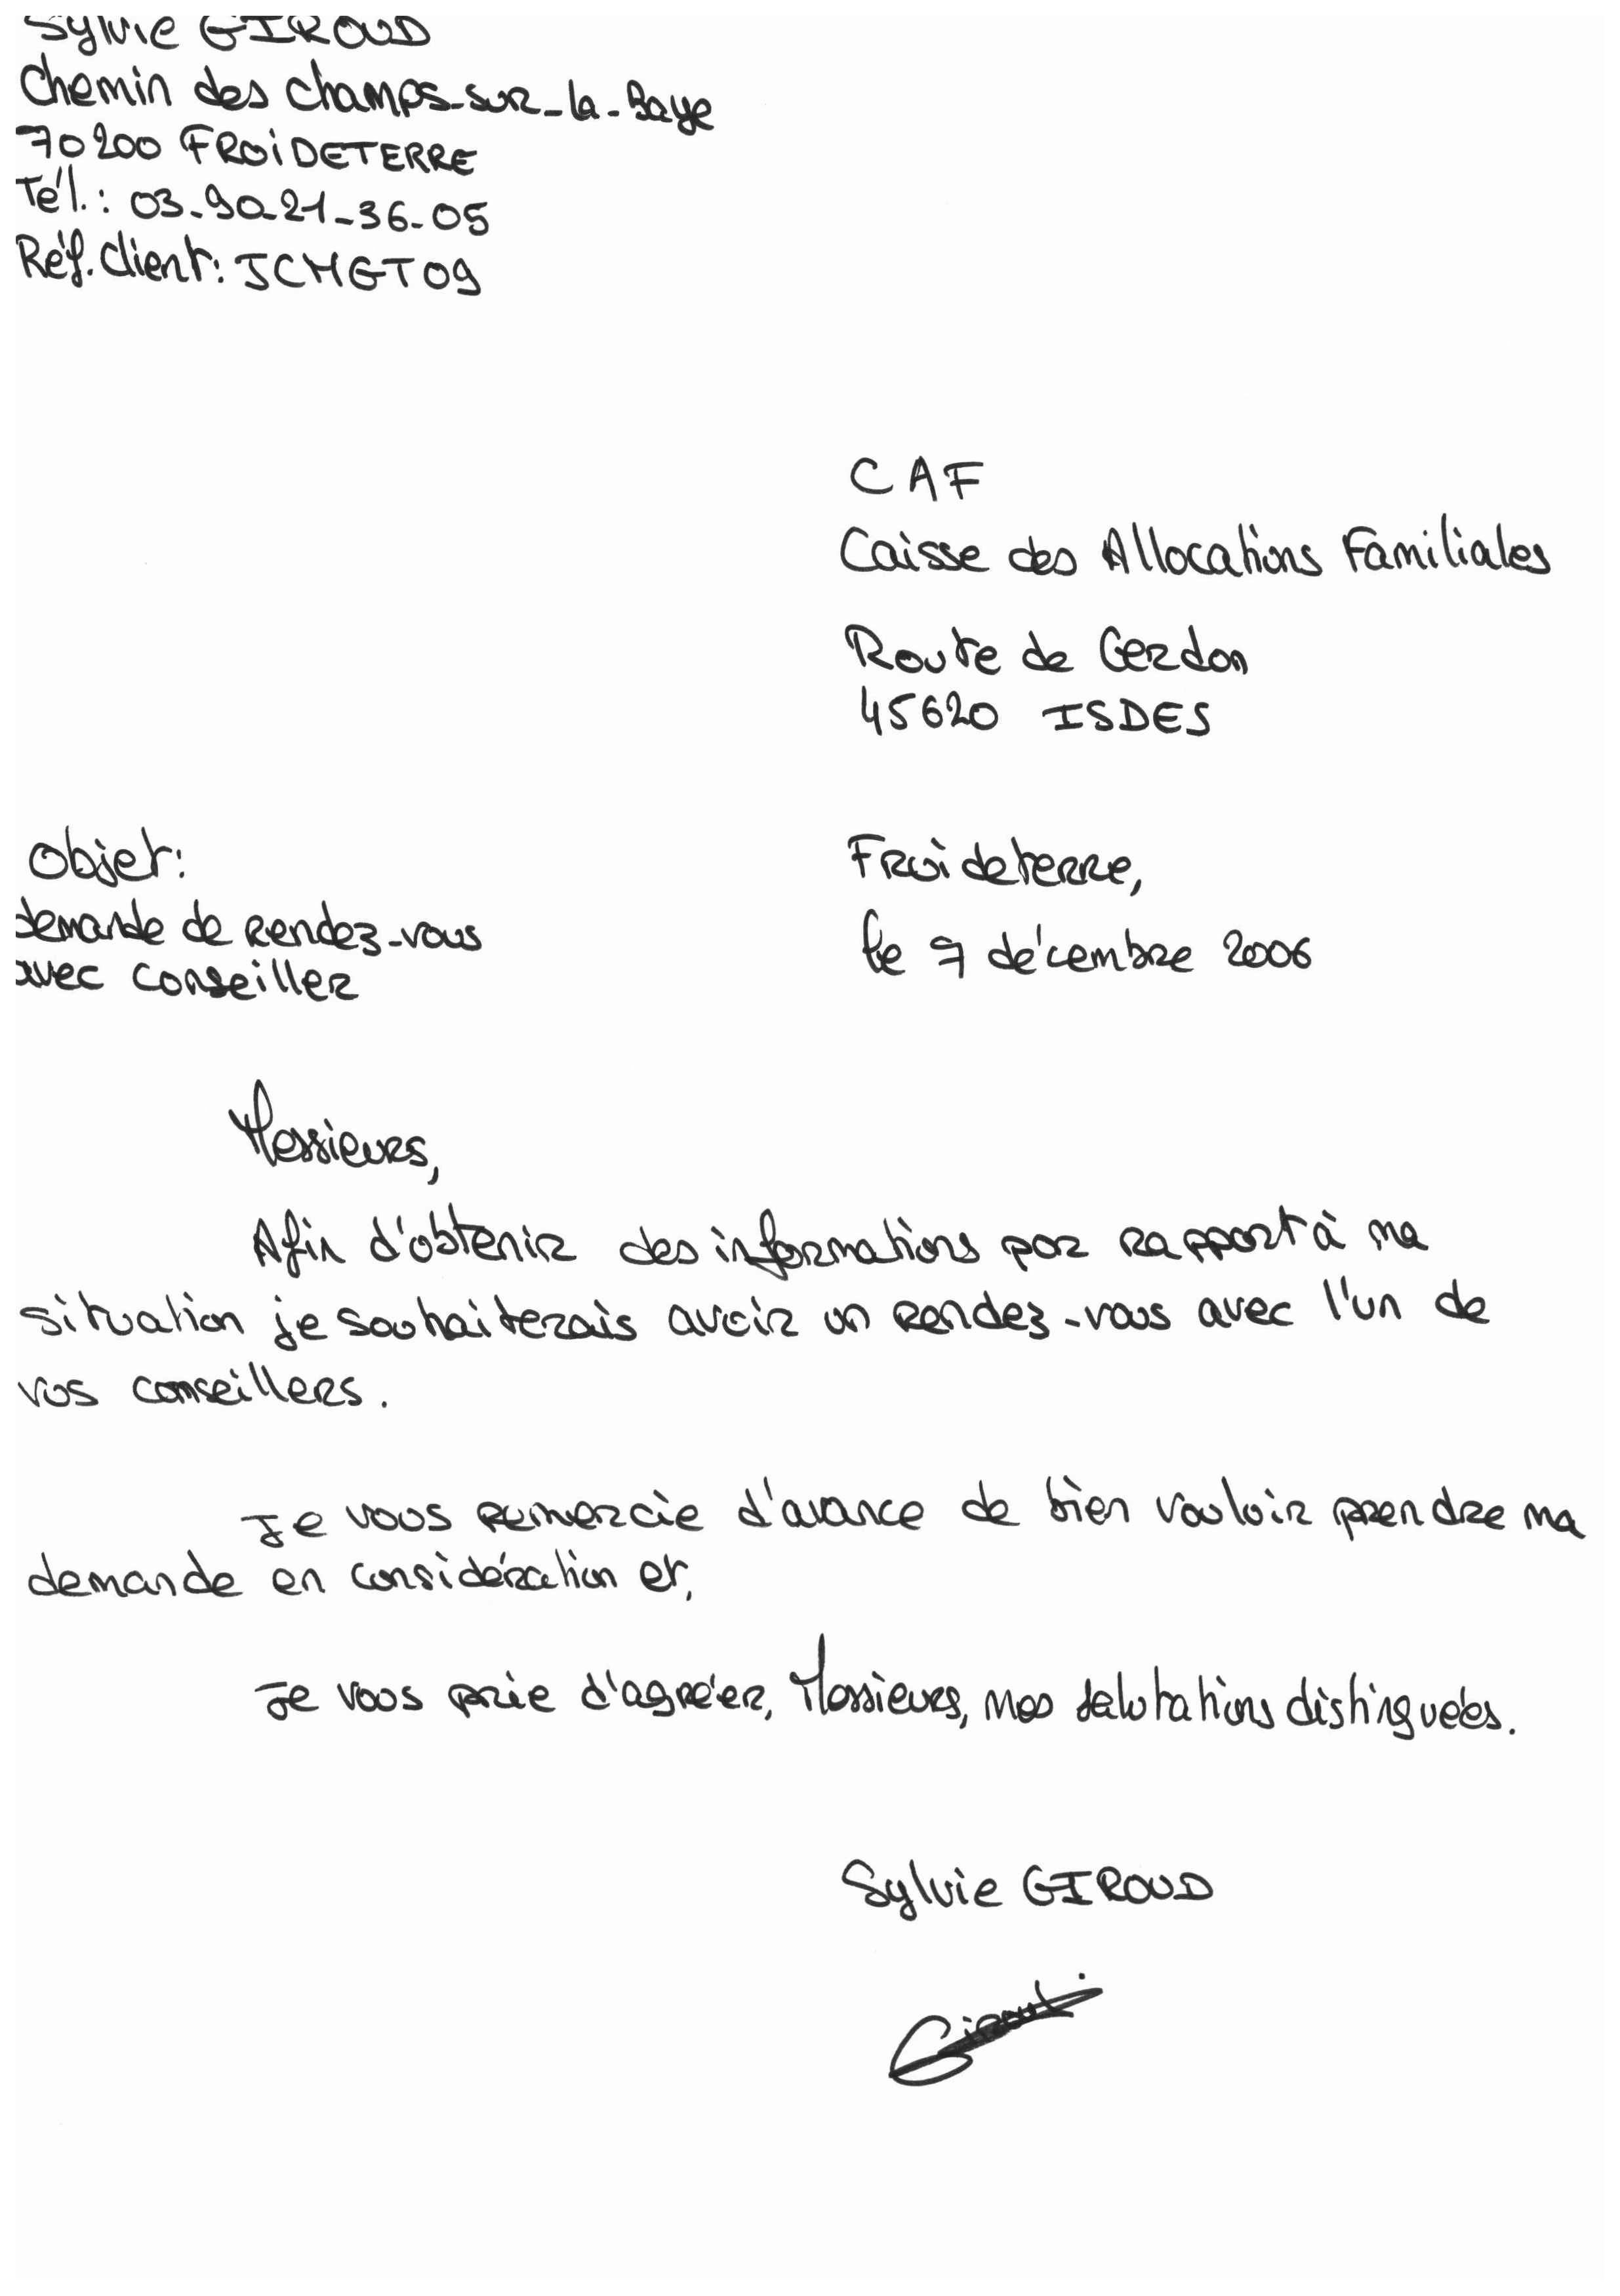 Sylvie GIROUD
Chemin des Champs-sur-la-Baye
70200 FROIDETERRE
Tél.: 03-90-21-36-05
Réf. Client: JCMGT09
CAF
Caisse des Allocations Familiales
Route de Cerdon
45620 ISDES
Objet:
demande de rendez-vous
avec conseiller
Froideterre,
le 7 décembre 2006
Messieurs,
Afin d'obtenir des informations par rapport à ma
situation je souhaiterais avoir un rendez-vous avec l'un de
vos conseillers.
Je vous remercie d'avance de bien vouloir prendre ma
demande en considération et,
Je vous prie d'agréer, Messieurs, mes salutations distinguées.
Sylvie GIROUD
Giroud